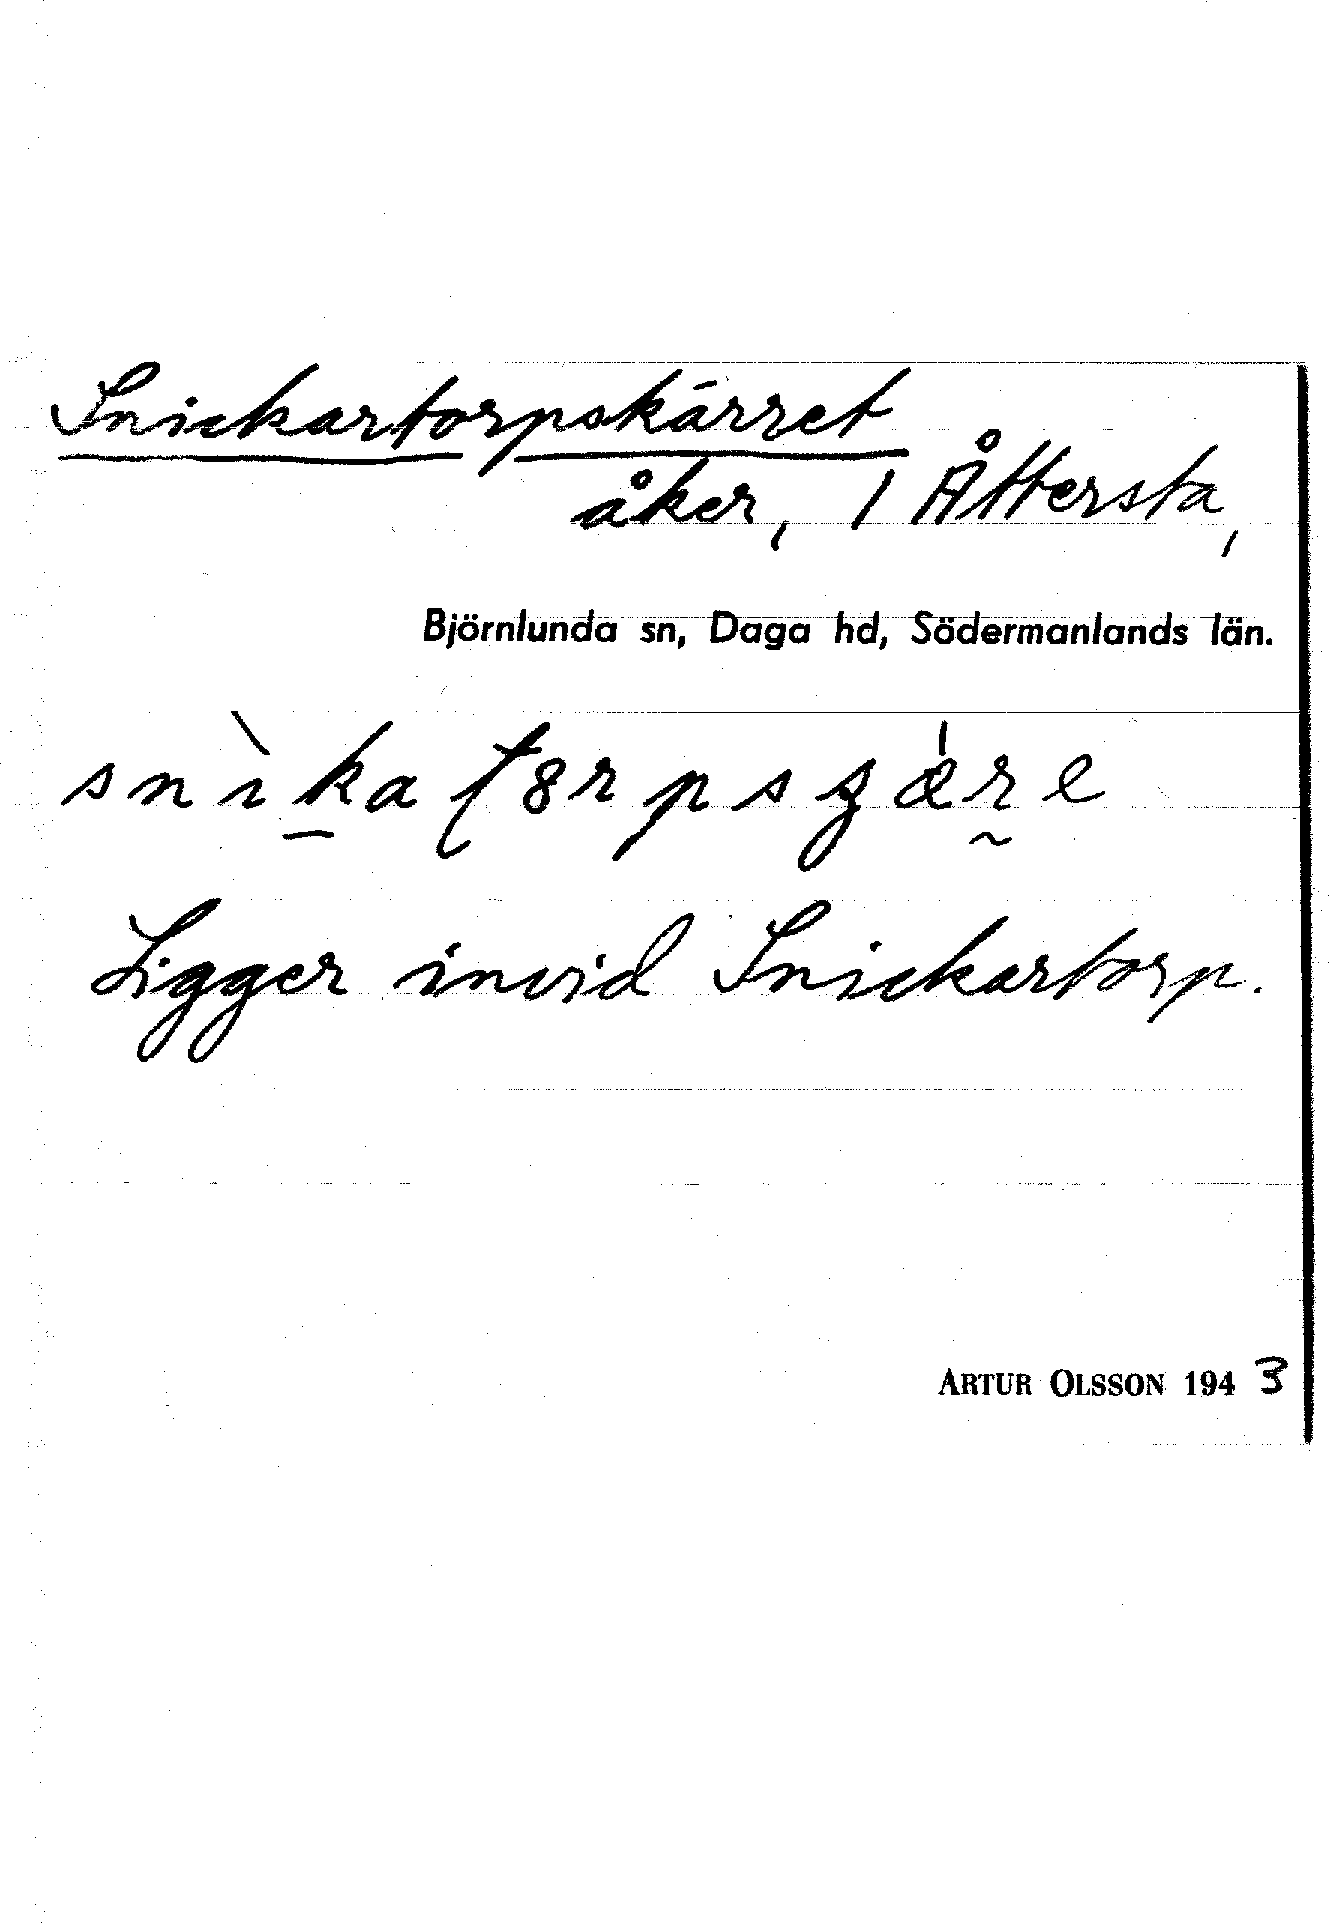 Snickartorpskärret
åker, / Åttersta,
Björnlunda sn, Daga hd, Södermanlands län.
Ligger invid Snickartorp.
ARTUR OLSSON 1943